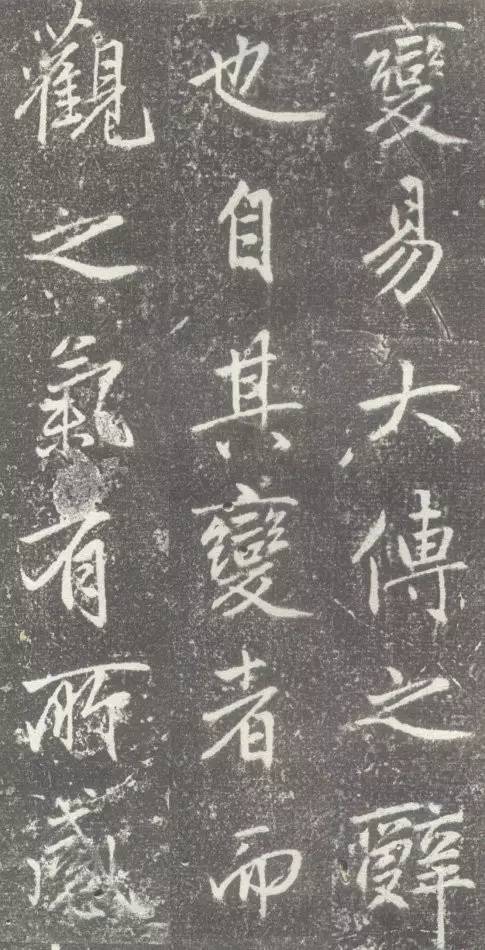 變易大傳之辤
也自其變者而
觀之氣有所感